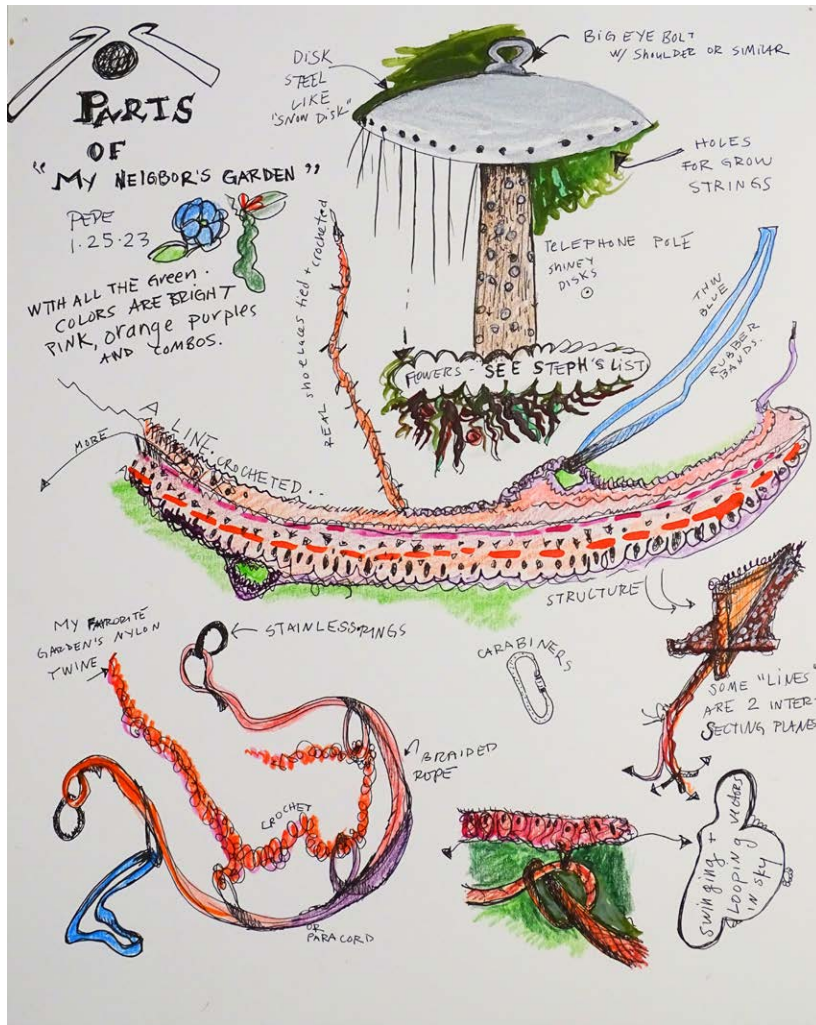 PARTS
OF
"MY NEIGBOR'S GARDEN"
PEPE
1.25.23
WITH ALL THE GREEN.
COLORS ARE BRIGHT
PINK, orange purples
AND COMBOS.
DISK
STEEL
LIKE
"SNOW DISK"
BIG EYE BOLT
W/ SHOULDER OR SIMILAR
HOLES
FOR GROW
STRINGS
TELEPHONE POLE
SHINEY
DISKS
REAL shoelaces tied + crocheted
THIN
BLUE
RUBBER
BANDS.
FLOWERS - SEE STEPH'S LIST
MORE
A LINE CROCHETED..
STRUCTURE
MY FAVORITE
GARDEN'S NYLON
TWINE
STAINLESS RINGS
CARABINERS
SOME "LINES"
ARE 2 INTER-
SECTING PLANES
BRAIDED
ROPE
CROCHET
OR
PARACORD
Swinging +
LOOPING vectors
IN SKY